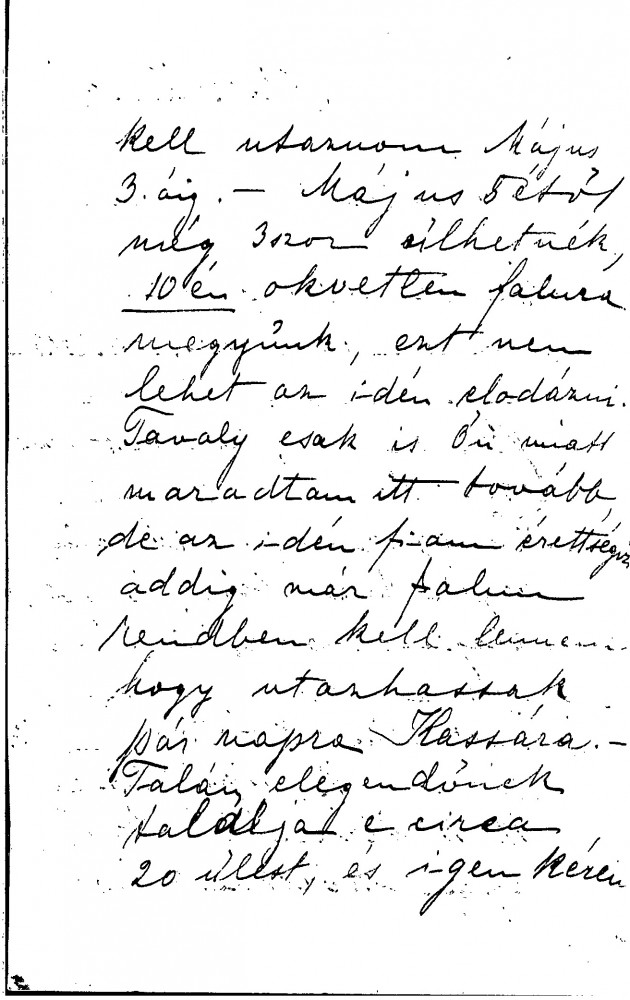 kell utaznom Május
3.áig. – Május 5étől
még 3szor ülhetnék,
10én okvetlen falura
megyünk, ezt nem
lehet az idén elodázni.
Tavaly csak is Ön miatt
maradtam itt tovább,
de az idén fiam érettségiz
addig már falun
rendben kell lennem
hogy utazhassak
pár napra Kassára. –
Talán elegendőnek
találja e circa
20 ülést, és igen kérem